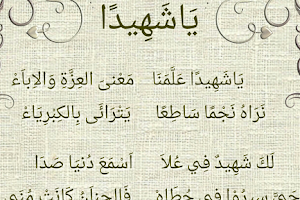 يَاشَهِيدًا
يَاشَهِيدًا عَلَّمَنَا مَعْنىَ العِزَّةِ وَالاِبَاَءْ
نَرَاهُ نَجْمًا سَاطِعًا يَتَرَائَى بِالكِبْرِيَاءْ
لَكَ شَهِيدٌ فِي عُلاَ اَسْمَعَ دُنيَا صَدَا
سِيرُوا فِي خُطَاهْ فَالجِنَانُ كَانَتْ مُنَى